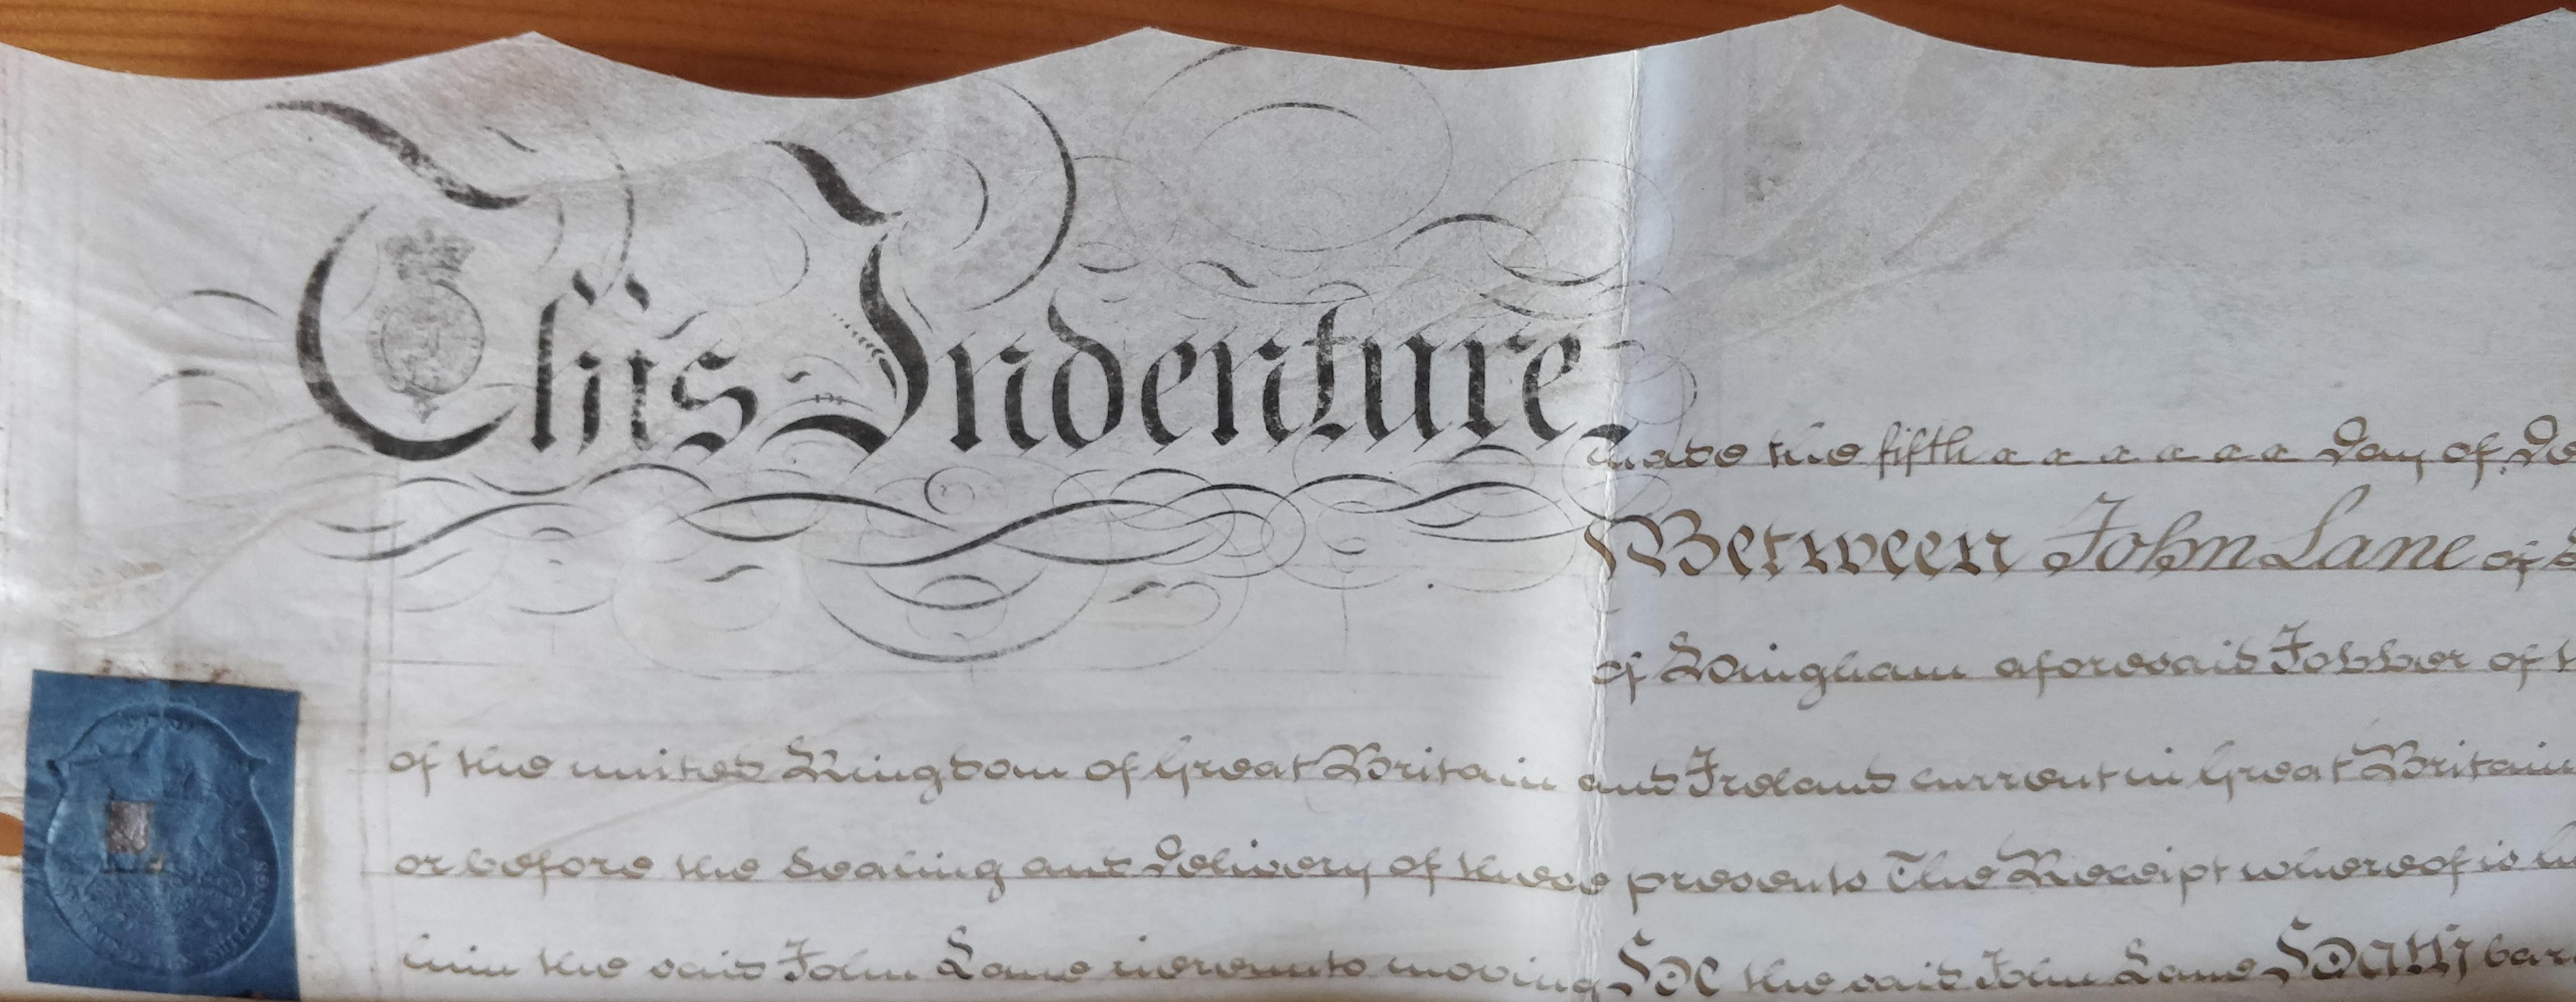 This Indenture
made the fifth day of De
Between John Lane of
of Wingham aforesaid Jobber of
of the united Kingdom of Great Britain and Ireland current in Great Britain
or before the Sealing and Delivery of these presents The Receipt whereof is
him the said John Lane hereunto moving He the said John Lane Hath bar